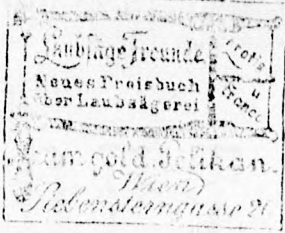 Laubsäge Freunde
Neues Preisbuch
über Laubsägerei
gratis
u
franco
zum gold. Pelikan.
Wien
Siebensterngasse 24